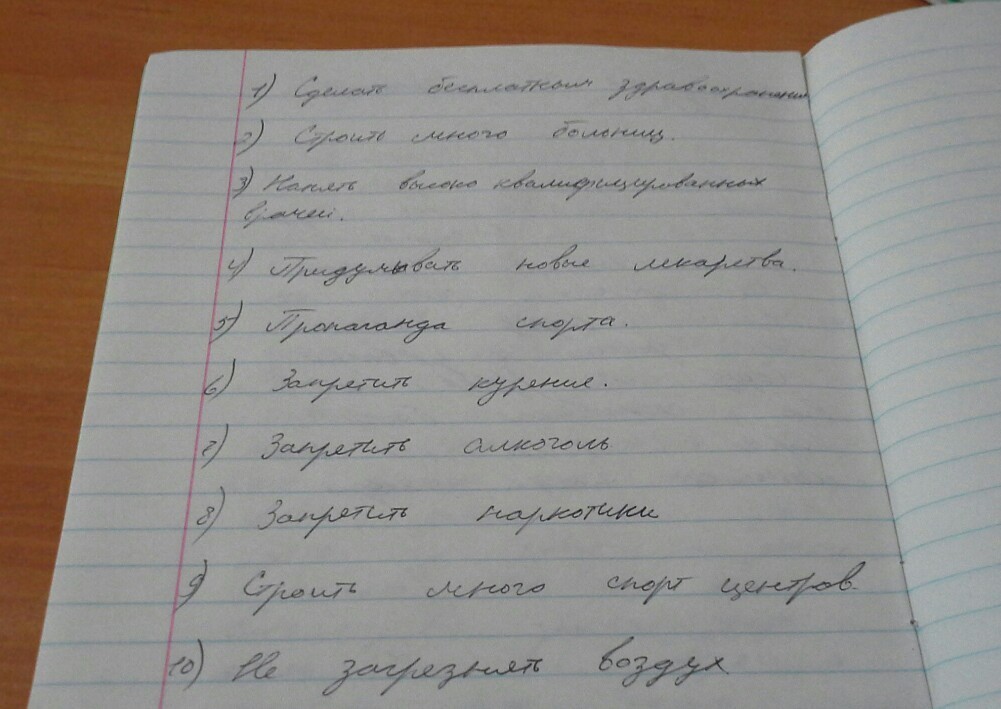 1) Сделать бесплатным здравоохранение
2) Строить много больниц.
3) Нанять высоко квалифицированных
врачей.
4) Придумывать новые лекарства.
5) Пропаганда спорта.
6) Запретить курение.
7) Запретить алкоголь
8) Запретить наркотики
9) Строить много спорт центров.
10) Не загрезнять воздух